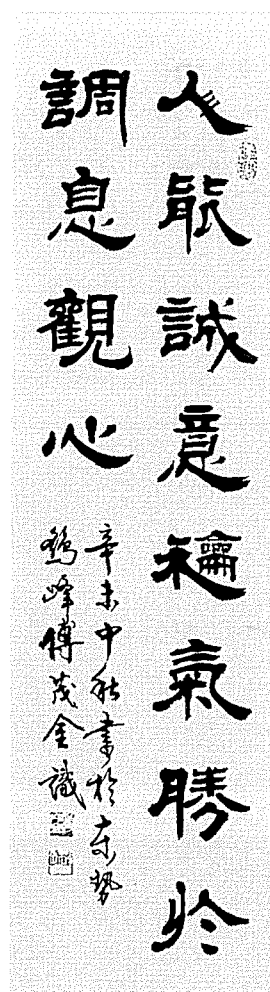 人能誠意龢氣勝於
調息觀心
辛未中秋書於東勢
鶴峰傅茂金識